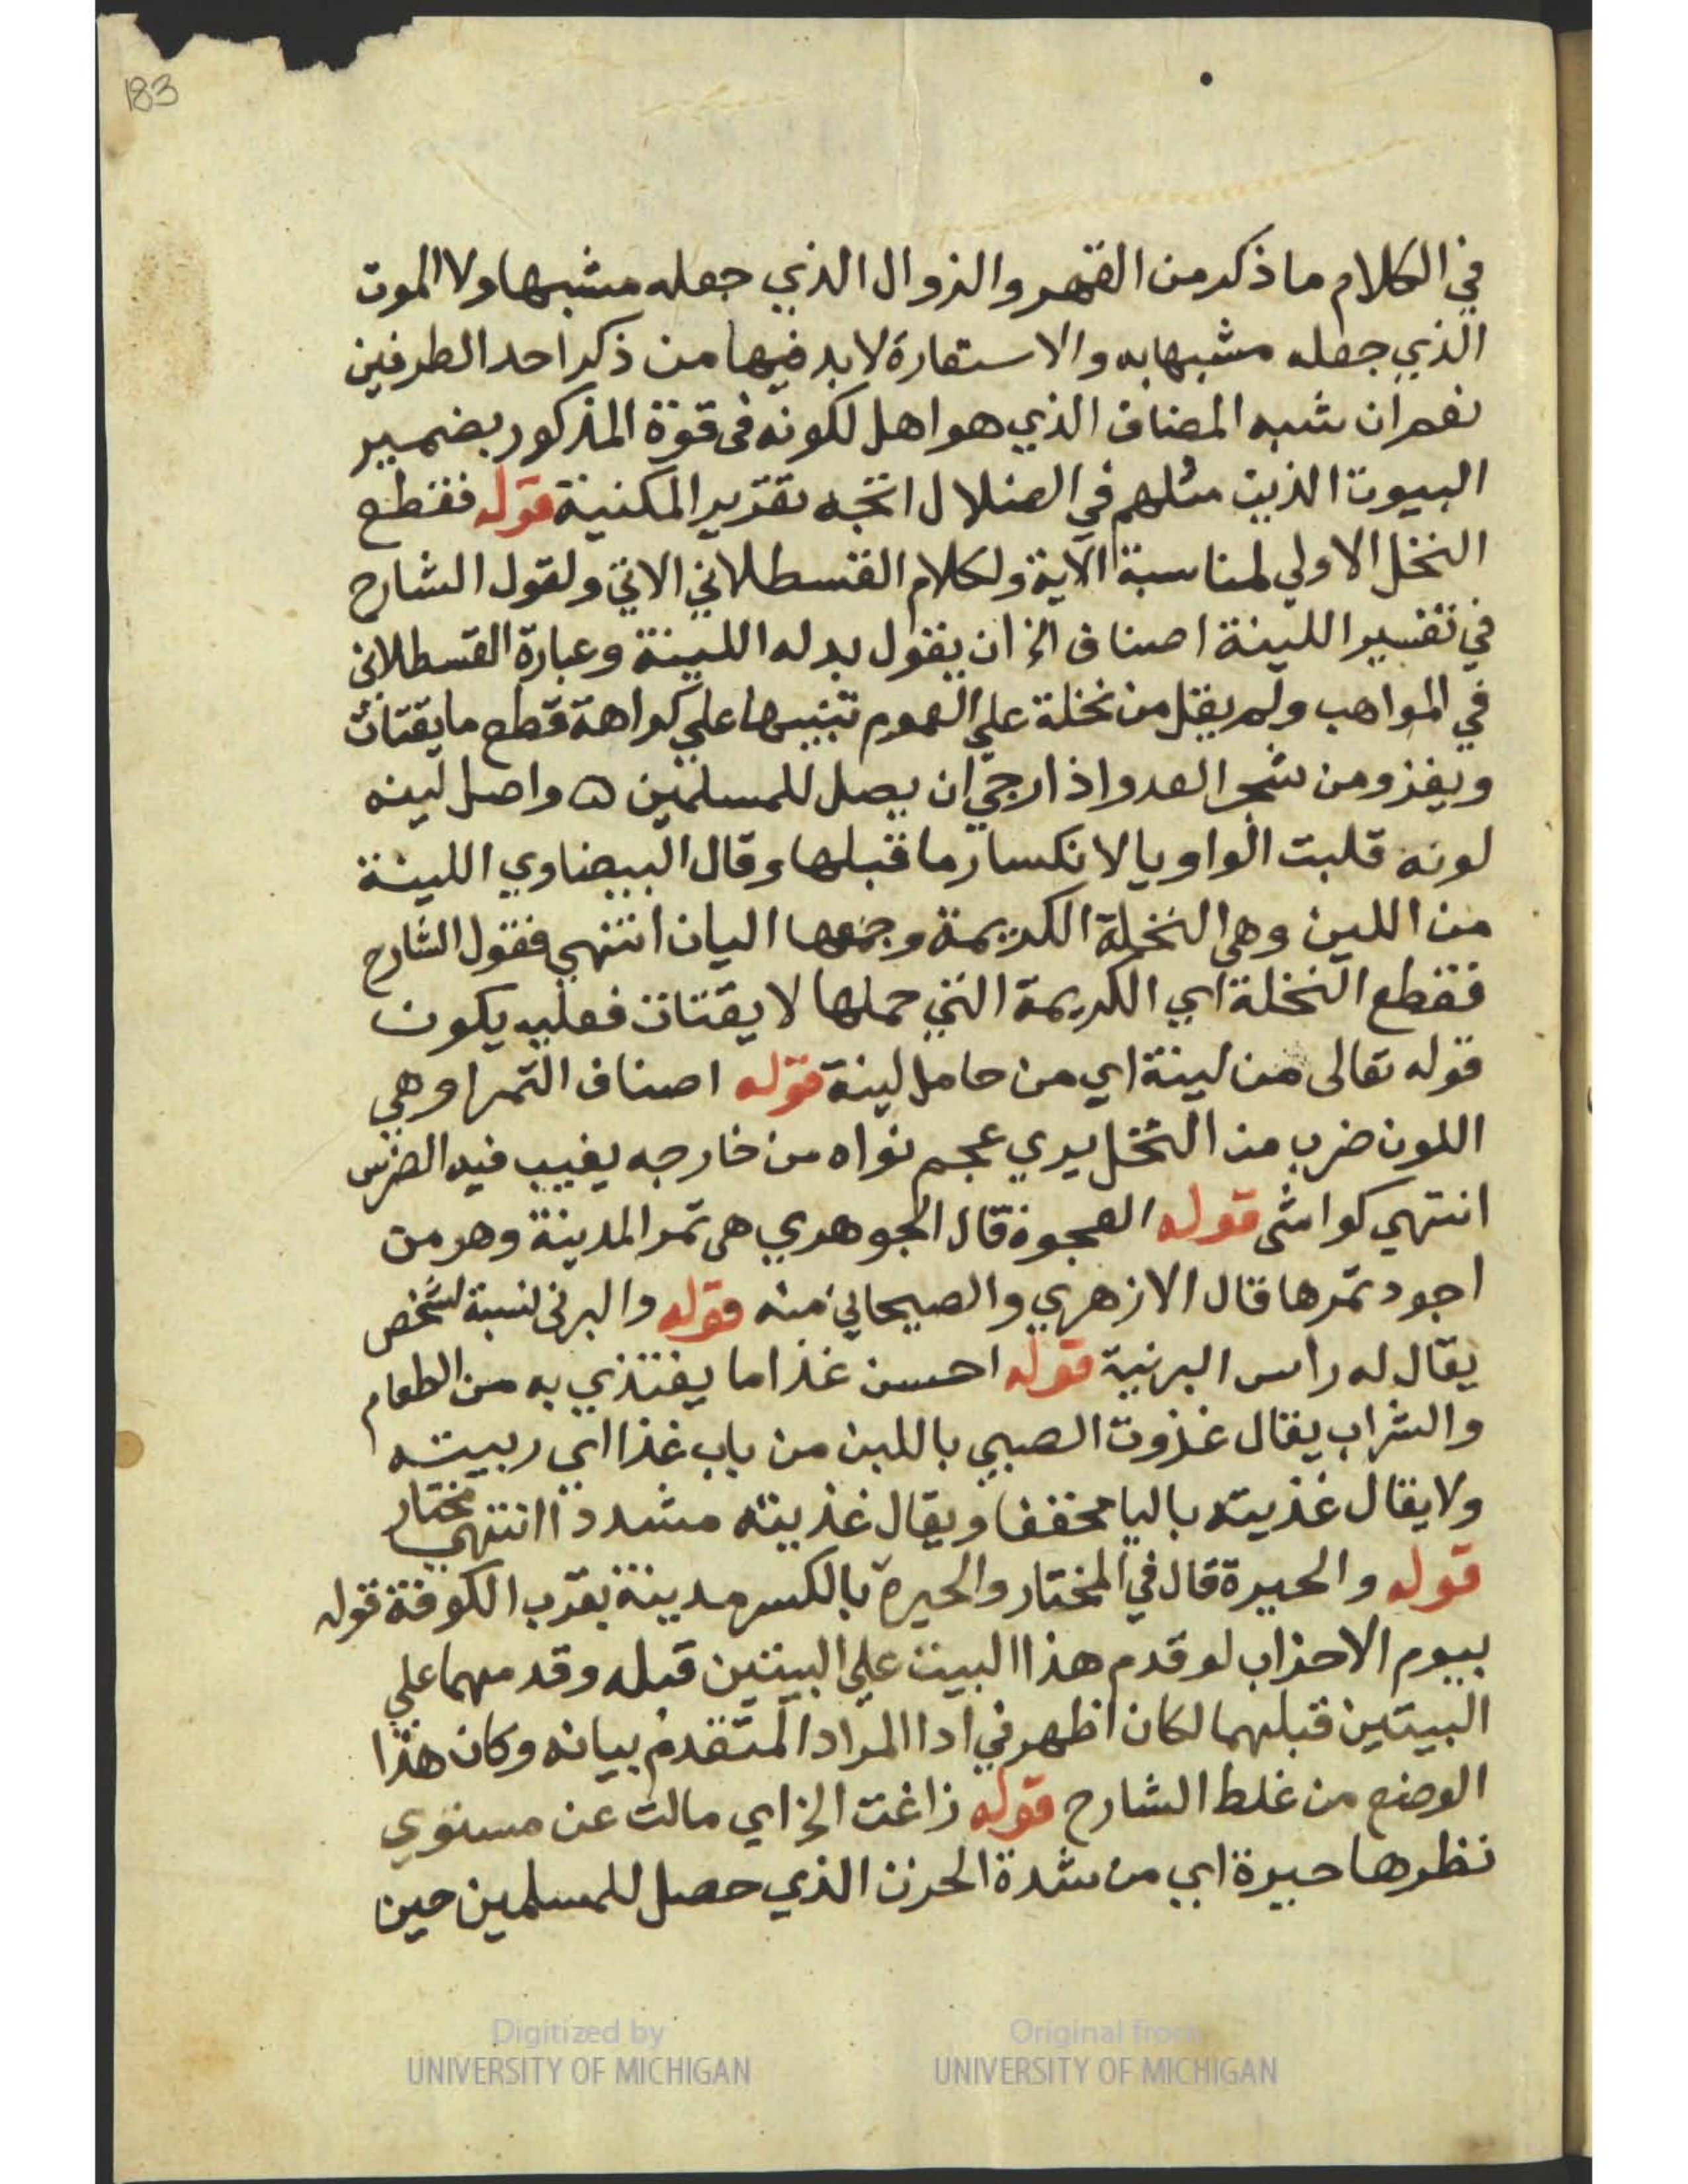 183
في الكلام ما ذكر من القهر والزوال الذي جعله مشبها ولا الموت
الذي جعله مشبها به والاستعارة لا بد فيها من ذكر احد الطرفين
نعم ان شبه المضاف الذي هو اهل لكونه في قوة المذكور بضمير
البيوت الذين مثلهم في الضلال اتجه تقرير المكنية قوله فقطع
النخل الاولي لمناسبة الآية ولكلام القسطلاني الاتي ولقول الشارح
في تفسير اللينة اصناف الخ ان يقول بدله اللينة وعبارة القسطلاني
في المواهب ولم يقل من نخلة علي العموم تنبيها علي كراهة قطع ما يقتات
ويغزو من شجر العدو اذا رجي ان يصل للمسلمين ه واصل لينه
لونه قلبت الواو يا لانكسار ما قبلها وقال البيضاوي اللينة
من اللين وهي النخلة الكريمة وجمعها اليان انتهي فقول الشارح
فقطع النخلة اي الكريمة التي حملها لا يقتات فعليه يكون
قوله تعالى من لينة اي من حامل لينة قوله اصناف التمر او هي
اللون ضرب من النخل يري عجم نواه من خارجه يغيب فيه الضرس
انتهي كواشى قوله العجوة قال الجوهري هى تمر المدينة وهو من
اجود تمرها قال الازهري والصيحاني منه قوله والبرنى نسبة لشخص
يقال له راس البرنية قوله احسن غذا ما يغتذي به من الطعام
والشراب يقال غذوت الصبي باللبن من باب غذا اي ربيته
ولا يقال غذيته باليا مخففا ويقال غذيته مشددا انتهي مختار
قوله والحيرة قال في المختار والحيرة بالكسر مدينة بقرب الكوفة قوله
بيوم الاحزاب لو قدم هذا البيت علي البيتين قبله وقدمهما علي
البيتين قبلهما لكان اظهر في ادا المراد المتقدم بيانه وكان هذا
الوضع من غلط الشارح قوله زاغت الخ اي مالت عن مستوي
نظرها حيرة اي من شدة الحزن الذي حصل للمسلمين حين
Digitized by UNIVERSITY OF MICHIGAN
Original from UNIVERSITY OF MICHIGAN